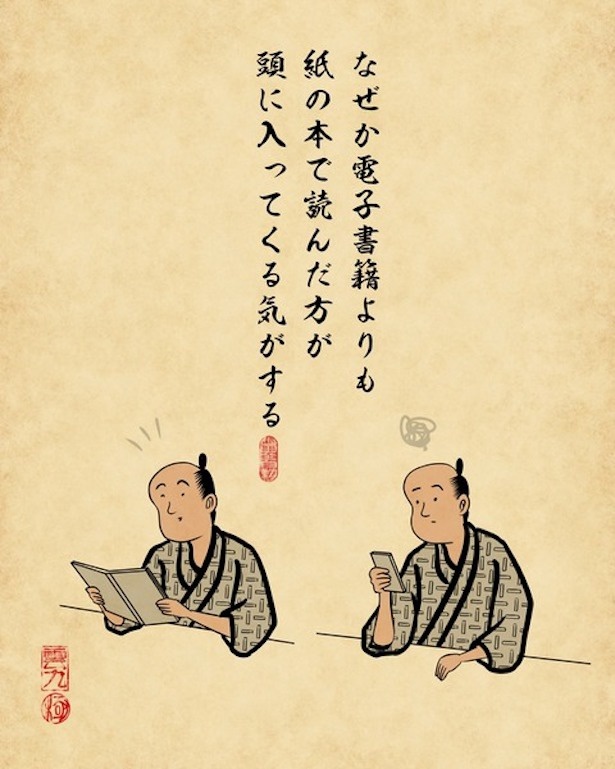 なぜか電子書籍よりも
紙の本で読んだ方が
頭に入ってくる気がする